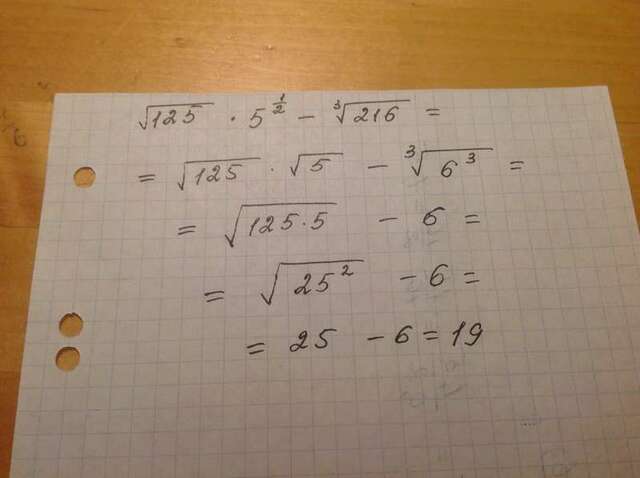 √125 · 5^½ − ∛216 =
= √125 · √5 − ∛6³ =
= √125·5 − 6 =
= √25² − 6 =
= 25 − 6 = 19